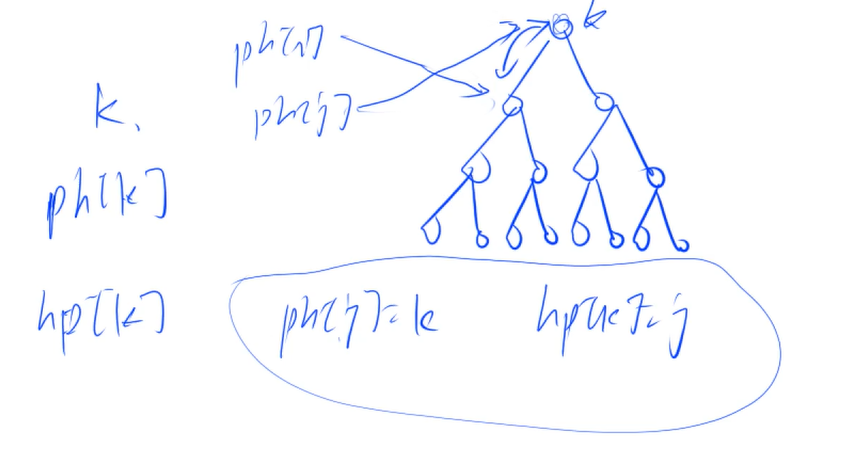 k
ph[i]
ph[j]
k,
ph[k]
hp[k]
ph[j]=k hp[k]=j